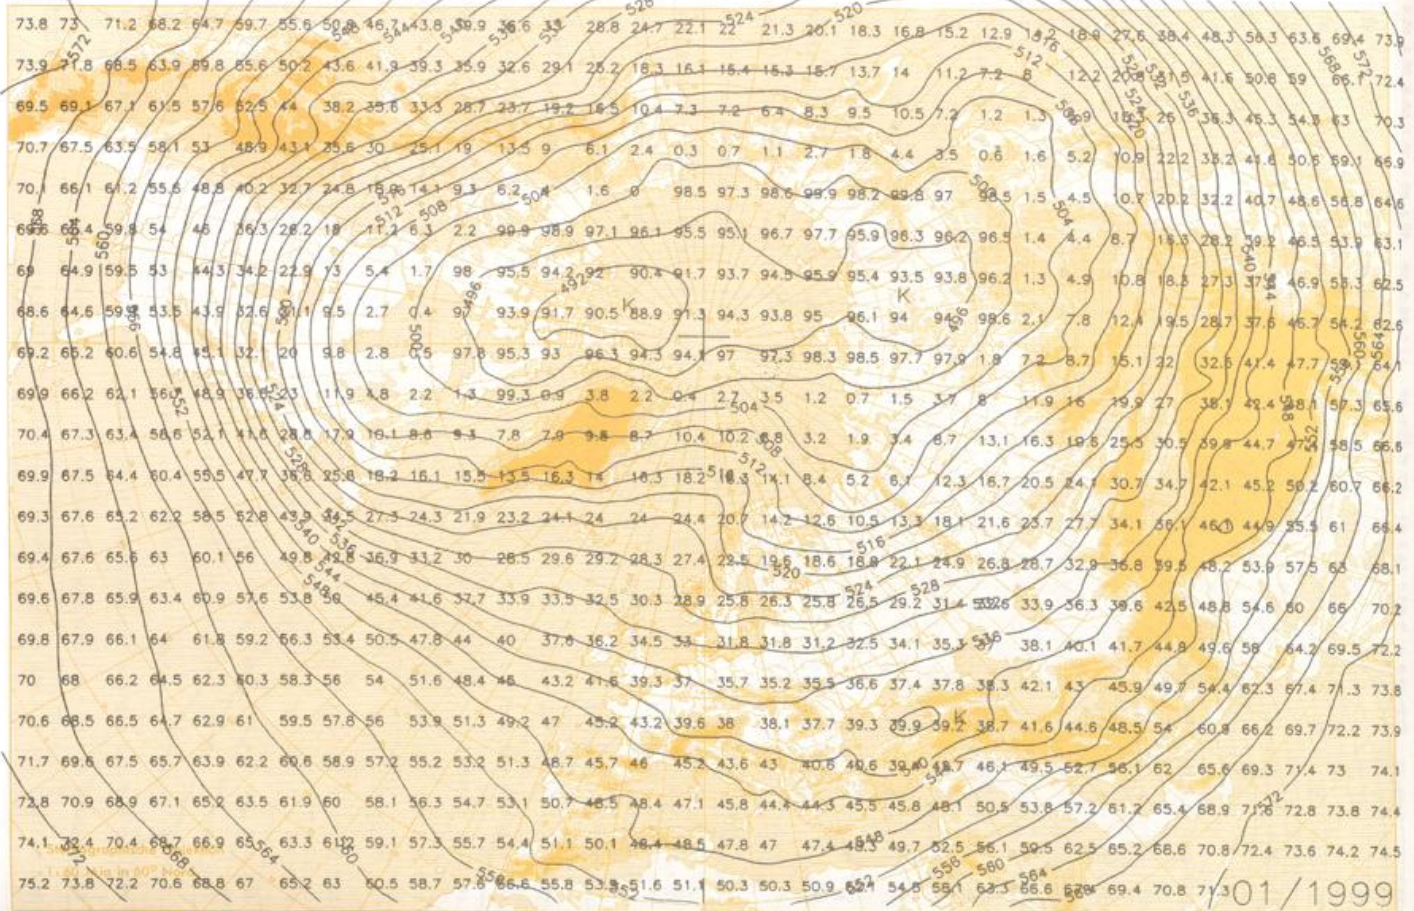 73.8 73 71.2 68.2 64.7 59.7 55.6 50.8 46.7 43.8 39.9 36.6 33 28.8 24.7 22.1 22 21.3 20.1 18.3 16.8 15.2 12.9 18.9 27.6 38.4 48.3 56.3 63.6 69.4 73.9
73.9 71.8 68.5 63.9 59.8 55.6 50.2 43.6 41.9 39.3 35.9 32.6 29.1 25.2 18.3 16.1 15.4 15.3 15.7 13.7 14 11.2 7.2 8 12.2 20.8 31.5 41.6 50.8 59 66.1 72.4
69.5 69.1 67.1 61.5 57.6 52.5 44 38.2 35.6 33.3 28.7 23.7 19.2 16.5 10.4 7.3 7.2 6.4 8.3 9.5 10.5 7.2 1.2 1.3 26 36.3 45.3 54.8 63 70.3
70.7 67.5 63.5 58.1 53 48.9 43.1 35.6 30 25.1 19 13.5 9 6.1 2.4 0.3 0.7 1.1 2.7 1.8 4.4 3.5 0.6 1.6 5.2 10.9 22.2 33.2 41.8 50.6 59.1 66.9
70.1 66.1 61.2 55.6 48.8 40.2 32.7 24.8 14.1 9.3 6.2 4 1.6 0 98.5 97.3 98.6 99.9 98.2 99.8 97 98.5 1.5 4.5 10.7 20.2 32.2 40.7 48.6 56.8 64.6
59.8 54 46 36.3 26.2 18 11.2 6.3 2.2 99.9 98.9 97.1 96.1 95.5 95.1 96.7 97.7 95.9 96.3 96.2 96.5 1.4 4.4 8.7 18.3 28.2 39.2 46.5 53.9 63.1
69 64.9 59.5 53 44.3 34.2 22.9 13 5.4 1.7 98 95.5 94.2 92 90.4 91.7 93.7 94.5 95.9 95.4 93.5 93.8 96.2 1.3 4.9 10.8 18.3 27.3 46.9 53.3 62.5
68.6 64.6 53.5 43.9 32.6 9.5 2.7 0.4 93.9 91.7 90.5 88.9 91.3 94.3 93.8 95 96.1 94 98.6 2.1 7.8 12.4 19.5 28.7 37.6 46.7 54.2 62.6
69.2 65.2 60.6 54.8 45.1 32.1 20 9.8 2.8 97.8 95.3 93 96.3 94.3 94.1 97 97.3 98.3 98.5 97.7 97.9 1.8 7.2 8.7 15.1 22 32.6 41.4 47.7 64.1
69.9 66.2 62.1 48.9 23 11.9 4.8 2.2 1.3 99.3 0.9 3.8 2.2 0.4 2.7 3.5 1.2 0.7 1.5 3.7 8 11.9 16 19.9 27 38.1 42.4 48.1 57.3 65.6
70.4 67.3 63.4 58.6 52.1 41.6 28.8 17.9 10.1 8.6 9.3 7.8 7.9 9.8 8.7 10.4 10.2 3.2 1.9 3.4 8.7 13.1 16.3 19.6 25.5 30.5 39.9 44.7 47.4 58.5 66.6
69.9 67.5 64.4 60.4 55.5 47.7 36.6 25.8 18.2 16.1 15.5 13.5 16.3 14 16.3 18.2 14.1 8.4 5.2 6.1 12.3 16.7 20.5 24.1 30.7 34.7 42.1 45.2 50.2 60.7 66.2
69.3 67.6 65.2 62.2 58.5 52.8 43.9 34.5 27.3 24.3 21.9 23.2 24.1 24 24 24.4 20.7 14.2 12.6 10.5 13.3 18.1 21.6 23.7 27.7 34.1 44.9 55.5 61 66.4
69.4 67.6 65.6 63 60.1 56 49.8 42.8 36.9 33.2 30 28.5 29.6 29.2 28.3 27.4 22.5 19.6 18.6 18.8 22.1 24.9 26.8 28.7 32.9 36.8 39.5 48.2 53.9 57.5 63 68.1
69.6 67.8 65.9 63.4 60.9 57.6 53.8 50 45.4 41.6 37.7 33.9 33.5 32.5 30.3 28.9 25.8 26.3 25.8 26.5 29.2 31.4 33.9 36.3 39.6 42.5 48.8 54.6 60 66 70.2
69.8 67.9 66.1 64 61.8 59.2 56.3 53.4 50.5 47.8 44 40 37.6 36.2 34.5 33 31.8 31.8 31.2 32.5 34.1 35.3 37 38.1 40.1 41.7 44.8 49.6 58 64.2 69.5 72.2
70 68 66.2 64.5 62.3 60.3 58.3 56 54 51.6 48.4 46 43.2 41.6 39.3 37 35.7 35.2 35.5 36.6 37.4 37.8 38.3 42.1 43 45.9 49.7 54.4 62.3 67.4 71.3 73.8
70.6 68.5 66.5 64.7 62.9 61 59.5 57.8 56 53.9 51.3 49.2 47 45.2 43.2 39.6 38 38.1 37.7 39.3 39.9 39.2 38.7 41.6 44.6 48.5 54 60.9 66.2 69.7 72.2 73.9
71.7 69.6 67.5 65.7 63.9 62.2 60.6 58.9 57.2 55.2 53.2 51.3 48.7 45.7 46 45.2 43.6 43 40.6 40.6 46.1 49.5 52.7 56.1 62 65.6 69.3 71.4 73 74.1
72.8 70.9 68.9 67.1 65.2 63.5 61.9 60 58.1 56.3 54.7 53.1 50.7 48.5 48.4 47.1 45.8 44.4 44.3 45.5 45.8 48.1 50.5 53.8 57.2 61.2 65.4 68.9 71.6 72.8 73.8 74.4
74.1 72.4 70.4 68.7 66.9 65 63.3 61.3 59.1 57.3 55.7 54.4 51.1 50.1 48.4 48.5 47.8 47 47.4 48.3 49.7 52.5 56.1 59.5 62.5 65.2 68.6 70.8 72.4 73.6 74.2 74.5
75.2 73.8 72.2 70.6 68.8 67 65.2 63 60.5 58.7 57.6 56.6 55.8 53.9 51.6 51.1 50.3 50.3 50.9 54.5 58.1 63.3 66.6 69.4 70.8 71.3
528 524 520 516 512
572 568 572
536
512 508 504 500 504
568 564 560 540
492 496 500 496
K K
552 504 508 512 516
528 536 540 544 548
516 520 524 528 536
K
540 544 548 552 556 560 564
572 568 564 560 556 552 572
/01/1999